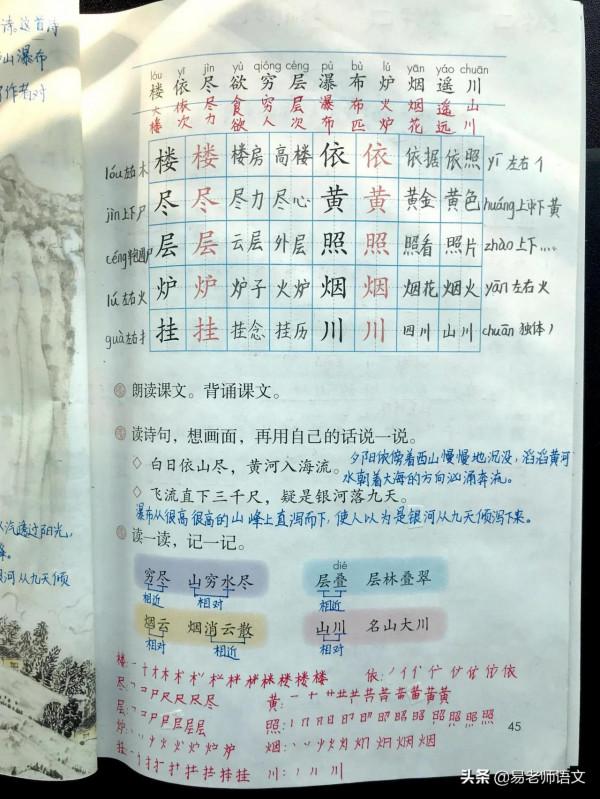 诗。这首诗
山瀑布
作者对
lóu yī jìn yù qióng céng pù bù lú yān yáo chuān
楼 依 尽 欲 穷 层 瀑 布 炉 烟 遥 川
大楼 依次 尽力 食欲 穷人 层次 瀑布 布匹 火炉 烟花 遥远 山川
lóu左右木 楼 楼 楼房 高楼 依 依 依据 依照 yī左右亻
jìn上下尸 尽 尽 尽力 尽心 黄 黄 黄金 黄色 huáng上中下黄
céng半包围尸 层 层 云层 外层 照 照 照看 照片 zhào上下灬
lú左右火 炉 炉 炉子 火炉 烟 烟 烟花 烟火 yān左右火
guà左右扌 挂 挂 挂念 挂历 川 川 四川 山川 chuān独体丿
朗读课文。背诵课文。
读诗句，想画面，再用自己的话说一说。
◇ 白日依山尽，黄河入海流。
夕阳依傍着西山慢慢地沉没，滔滔黄河
水朝着大海的方向汹涌奔流。
◇ 飞流直下三千尺，疑是银河落九天。
瀑布从很高很高的山峰上直泻而下，使人以为是银河从九天倾泻下来。
汽透过阳光，
河从九天倾
读一读，记一记。
dié
穷尽 山穷水尽 层叠 层林叠翠
相近 相对 相近
烟云 烟消云散 山川 名山大川
相对 相近 相对
楼： 楼楼楼 依： 依
尽： 尽 黄： 黄黄
层： 层层 照： 照照
炉： 炉 烟： 烟
挂： 挂 川： 川
45
头条 @易老师语文